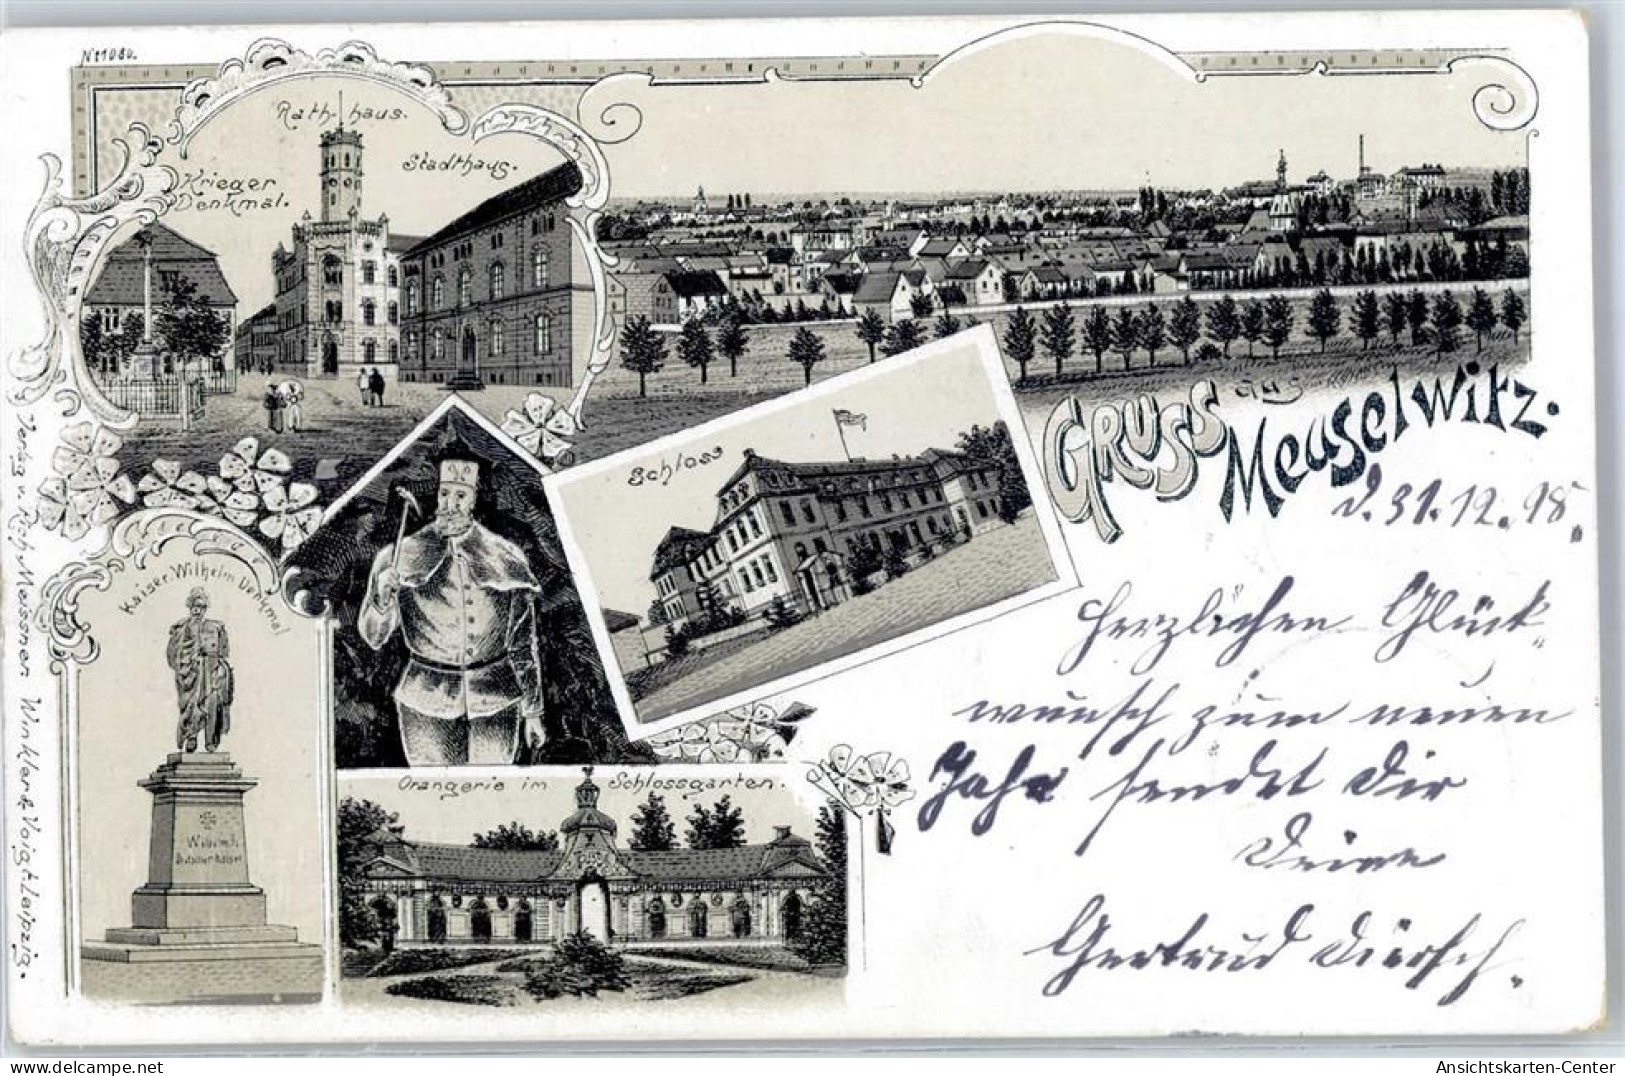 Nr 1080.
Rath-haus.
Stadthaus.
Krieger
Denkmal.
Gruss aus
Meuselwitz.
Schloss
d. 31.12.98.
Kaiser Wilhelm Denkmal
Herzlichen Glück„
wunsch zum neuen
Jahr sendet Dir
Deine
Gertrud
Orangerie im Schlossgarten.
Wilhelm I.
Deutscher Kaiser
Verlag v. Rich. Meissner Winkler & Voigt Leipzig.
Ansichtskarten-Center
www.delcampe.net